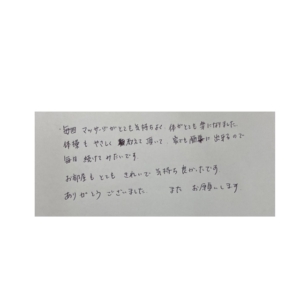 毎回 マッサージがとても気持ちよく 体がとても楽になりました
体操も やさしく 教えて頂いて 家でも簡単に出来るので
毎日 続けてみたいです
お部屋も とても きれいで 気持ち良かったです
ありがとう ございました また お願いします